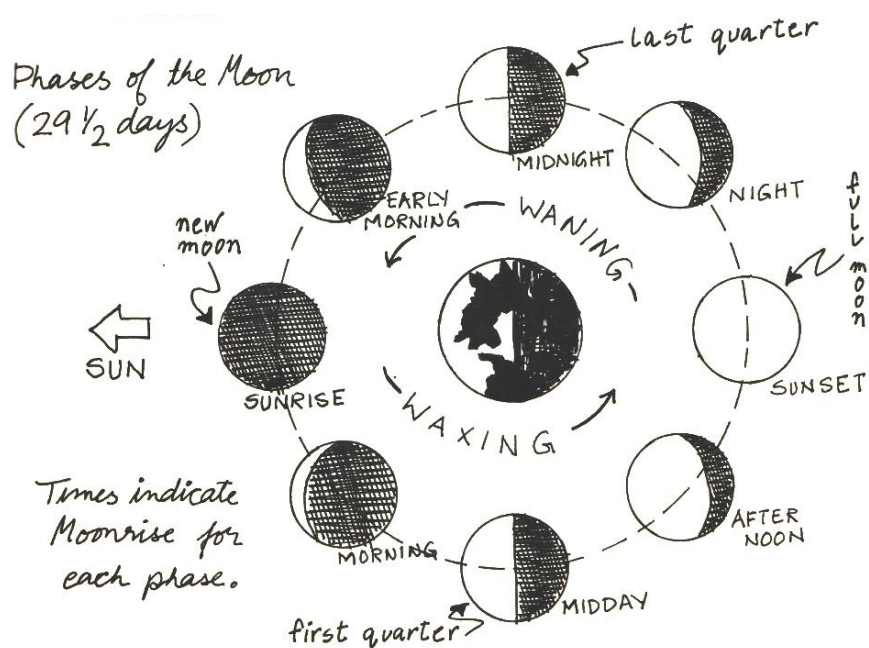 Phases of the Moon
(29 1/2 days)
last quarter
MIDNIGHT
NIGHT
full moon
EARLY
MORNING
WANING
new
moon
SUN
SUNRISE
SUNSET
WAXING
Times indicate
Moonrise for
each phase.
MORNING
AFTER
NOON
MIDDAY
first quarter